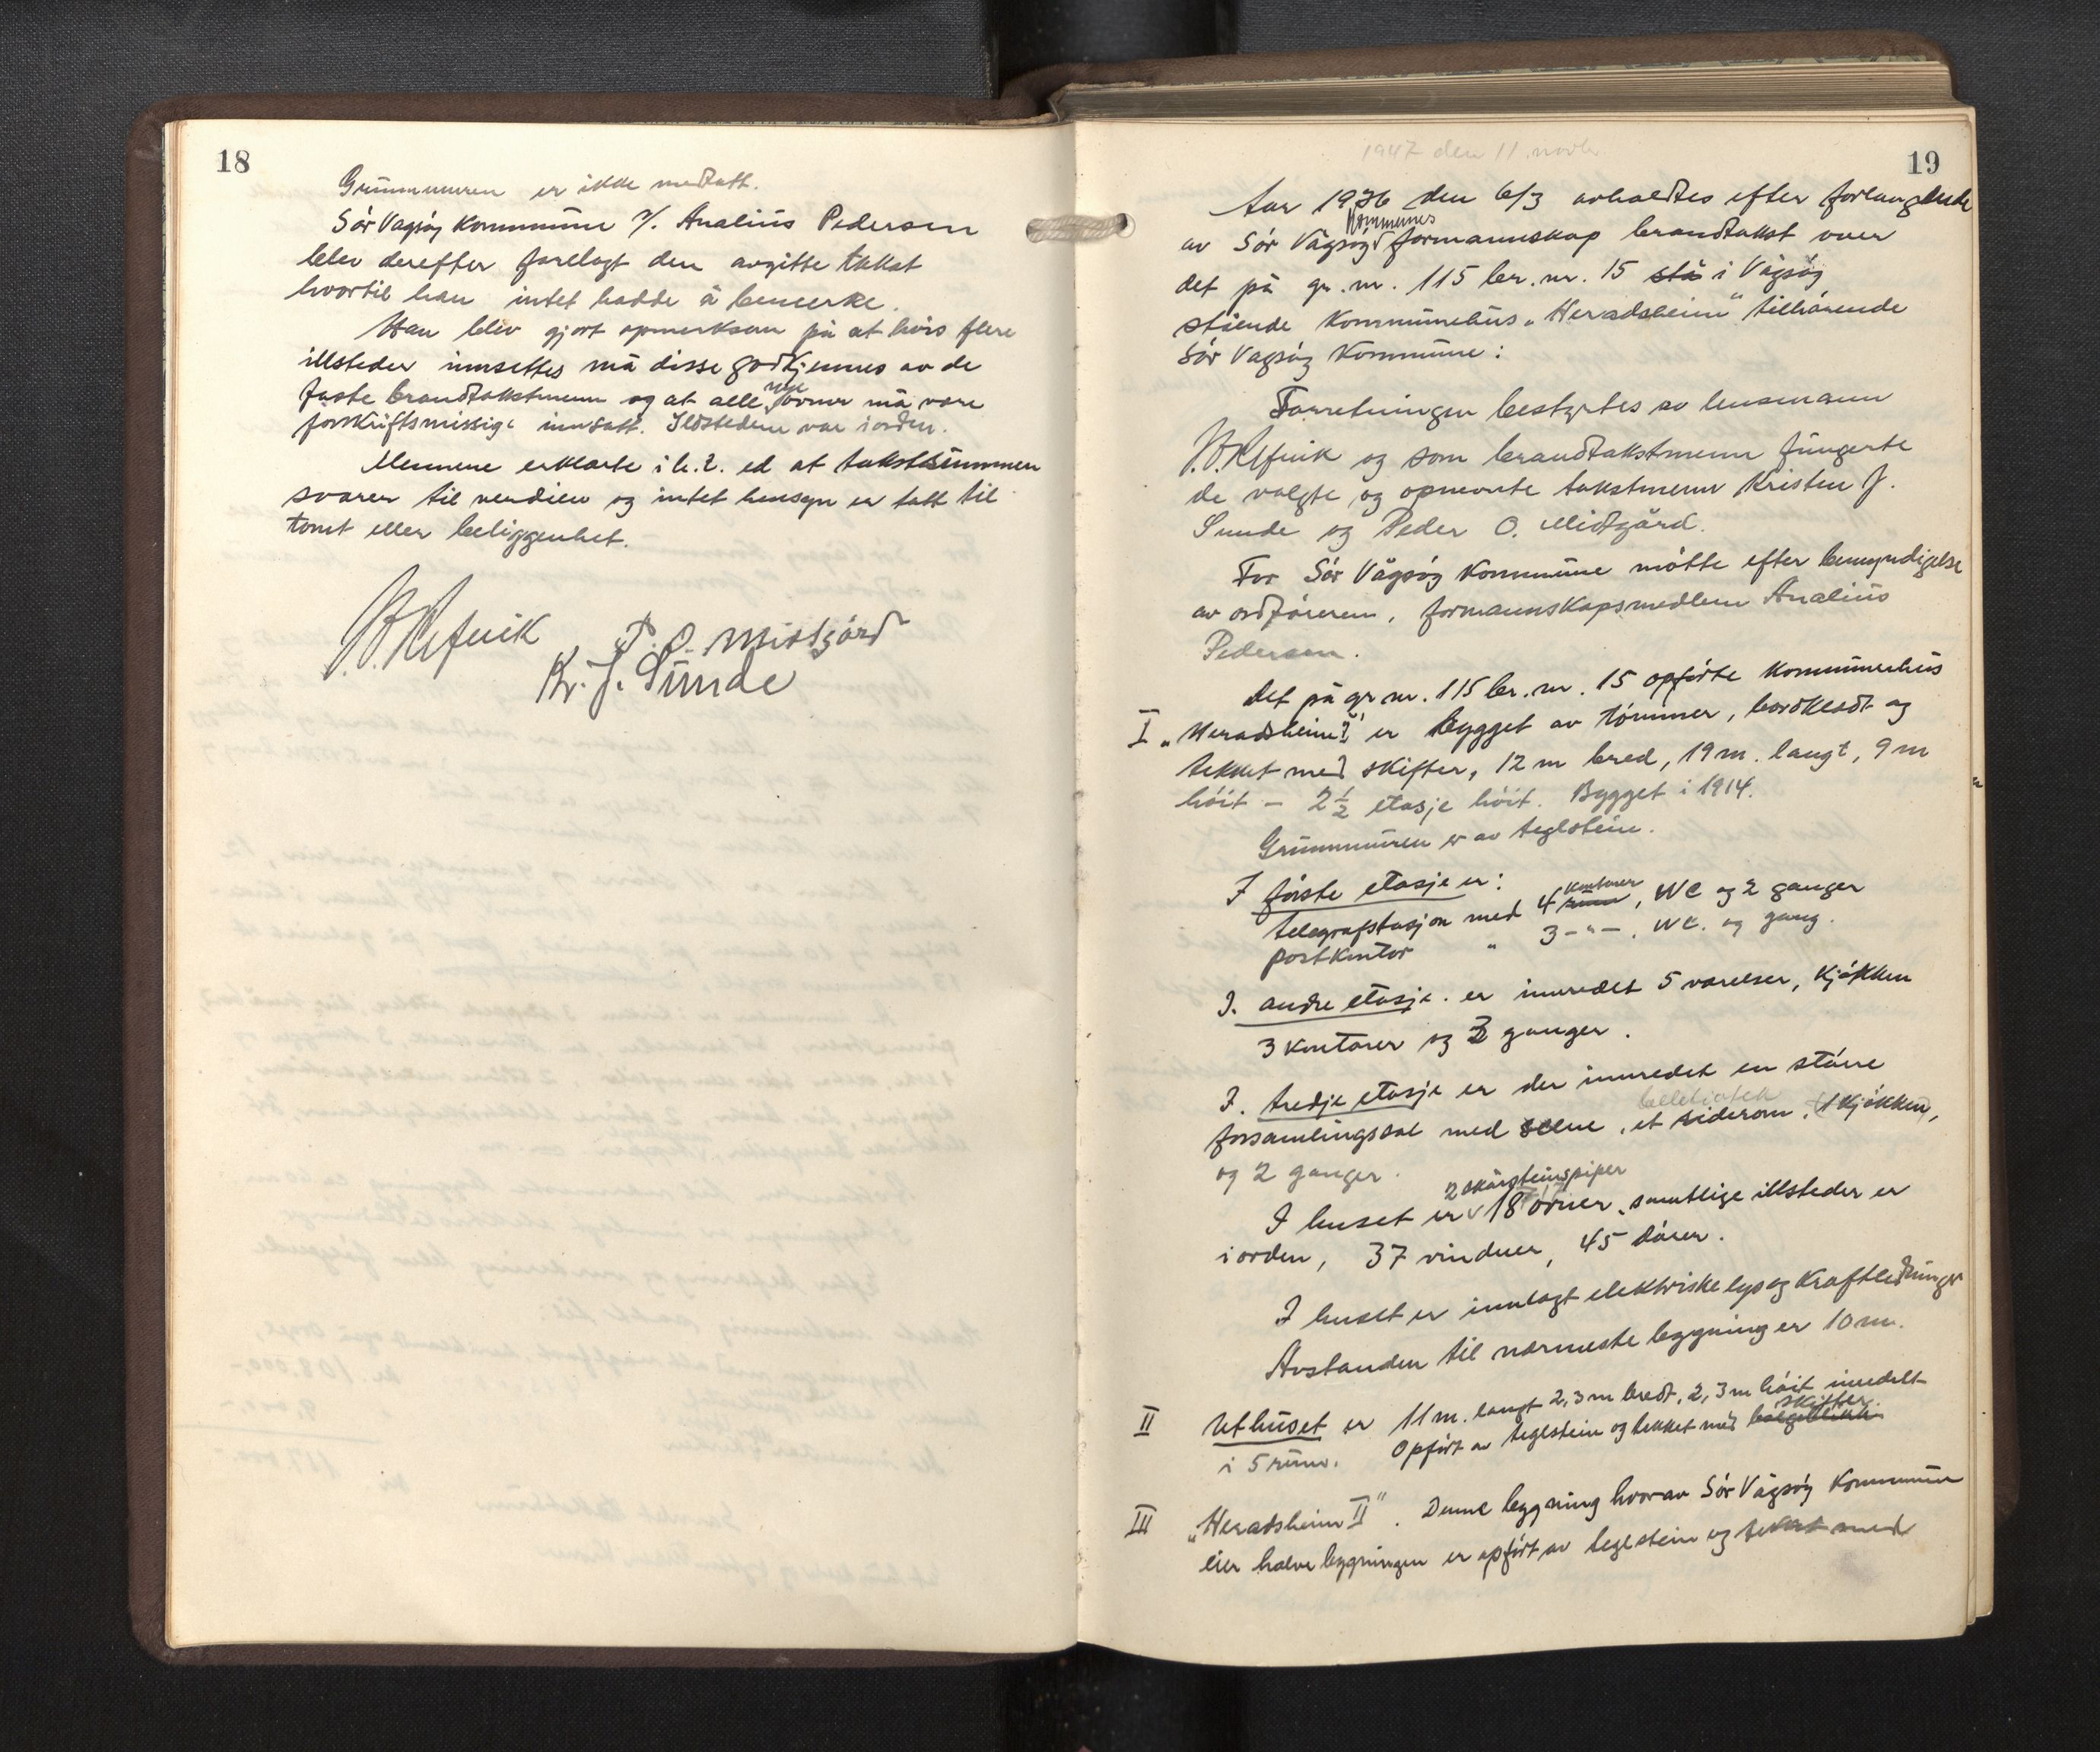 18
Grunnmuren er ikke medtatt.
Sør Vågsøy kommune v/. Analius Pedersen
blev derefter forelagt den avgitte takst
hvortil han intet hadde å bemerke.
Han blev gjort opmerksom på at hvis flere
illsteder innsettes må disse godkjennes av de
faste brandtakstmenn og at alle nye ovner må være
forskriftsmissige innsatt. Ildstedene var i orden.
Mennene erklærte i h. t. ed at takstsummen
svarer til verdien og intet hensyn er tatt til
tomt eller beliggenhet.
P. O. Midtgård
Kr. J. Sunde
19
1947 den 11. novbr
Aar 1936 den 6/3 avholdtes efter forlangende
av Sør Vågsøy Kommunes formannskap brandtakst over
det på gr. nr. 115 br. nr. 15 stå i Vågsøy
stående kommunehus "Heradsheim" tilhørende
Sør Vagsøy Kommune:
Forretningen bestyrtes av lensmann
Refvik og som brandtakstmenn fungerte
de valgte og opnevnte takstmenn Kristen J.
Sunde og Peder O. Midtgård.
For Sør Vågsøy Kommune møtte efter bemyndigelse
av ordføreren, formannskapsmedlem Analius
Pedersen.
Det på gr. nr. 115 br. nr. 15 opførte kommunehus
I "Heradsheim I" er bygget av tømmer, bordkledt og
tekket med skifter, 12 m bred, 19 m. langt, 9 m
høit – 2½ etasje høit. Bygget i 1914.
Grunnmuren er av teglstein.
I første etasje er:
telegrafstasjon med 4 rum kontorer, WC og 2 ganger
postkontor " 3 -"- , WC. og gang.
I. andre etasje. er innredet 5 værelser, kjøkken
3 kontorer og 3 ganger.
I. tredje etasje er der innredet en større
forsamlingssal med scene, et siderom bibliotek, (1 kjøkken),
og 2 ganger.
I huset er 2 skorsteinspiper 18 ovner, samtlige illsteder er
i orden, 37 vinduer, 45 dører.
I huset er innlagt elektriske lys og kraftledninger
Avstanden til nærmeste bygning er 10 m.
II Uthuset er 11 m. langt 2,3 m bredt, 2,3 m høit inndelt
i 5 rum. Opført av teglstein og tekket med bølgeblikk skifter.
III "Heradsheim II". Denne bygning hvorav Sør Vågsøy Kommune
eier halve bygningen er opført av teglstein og tekket med